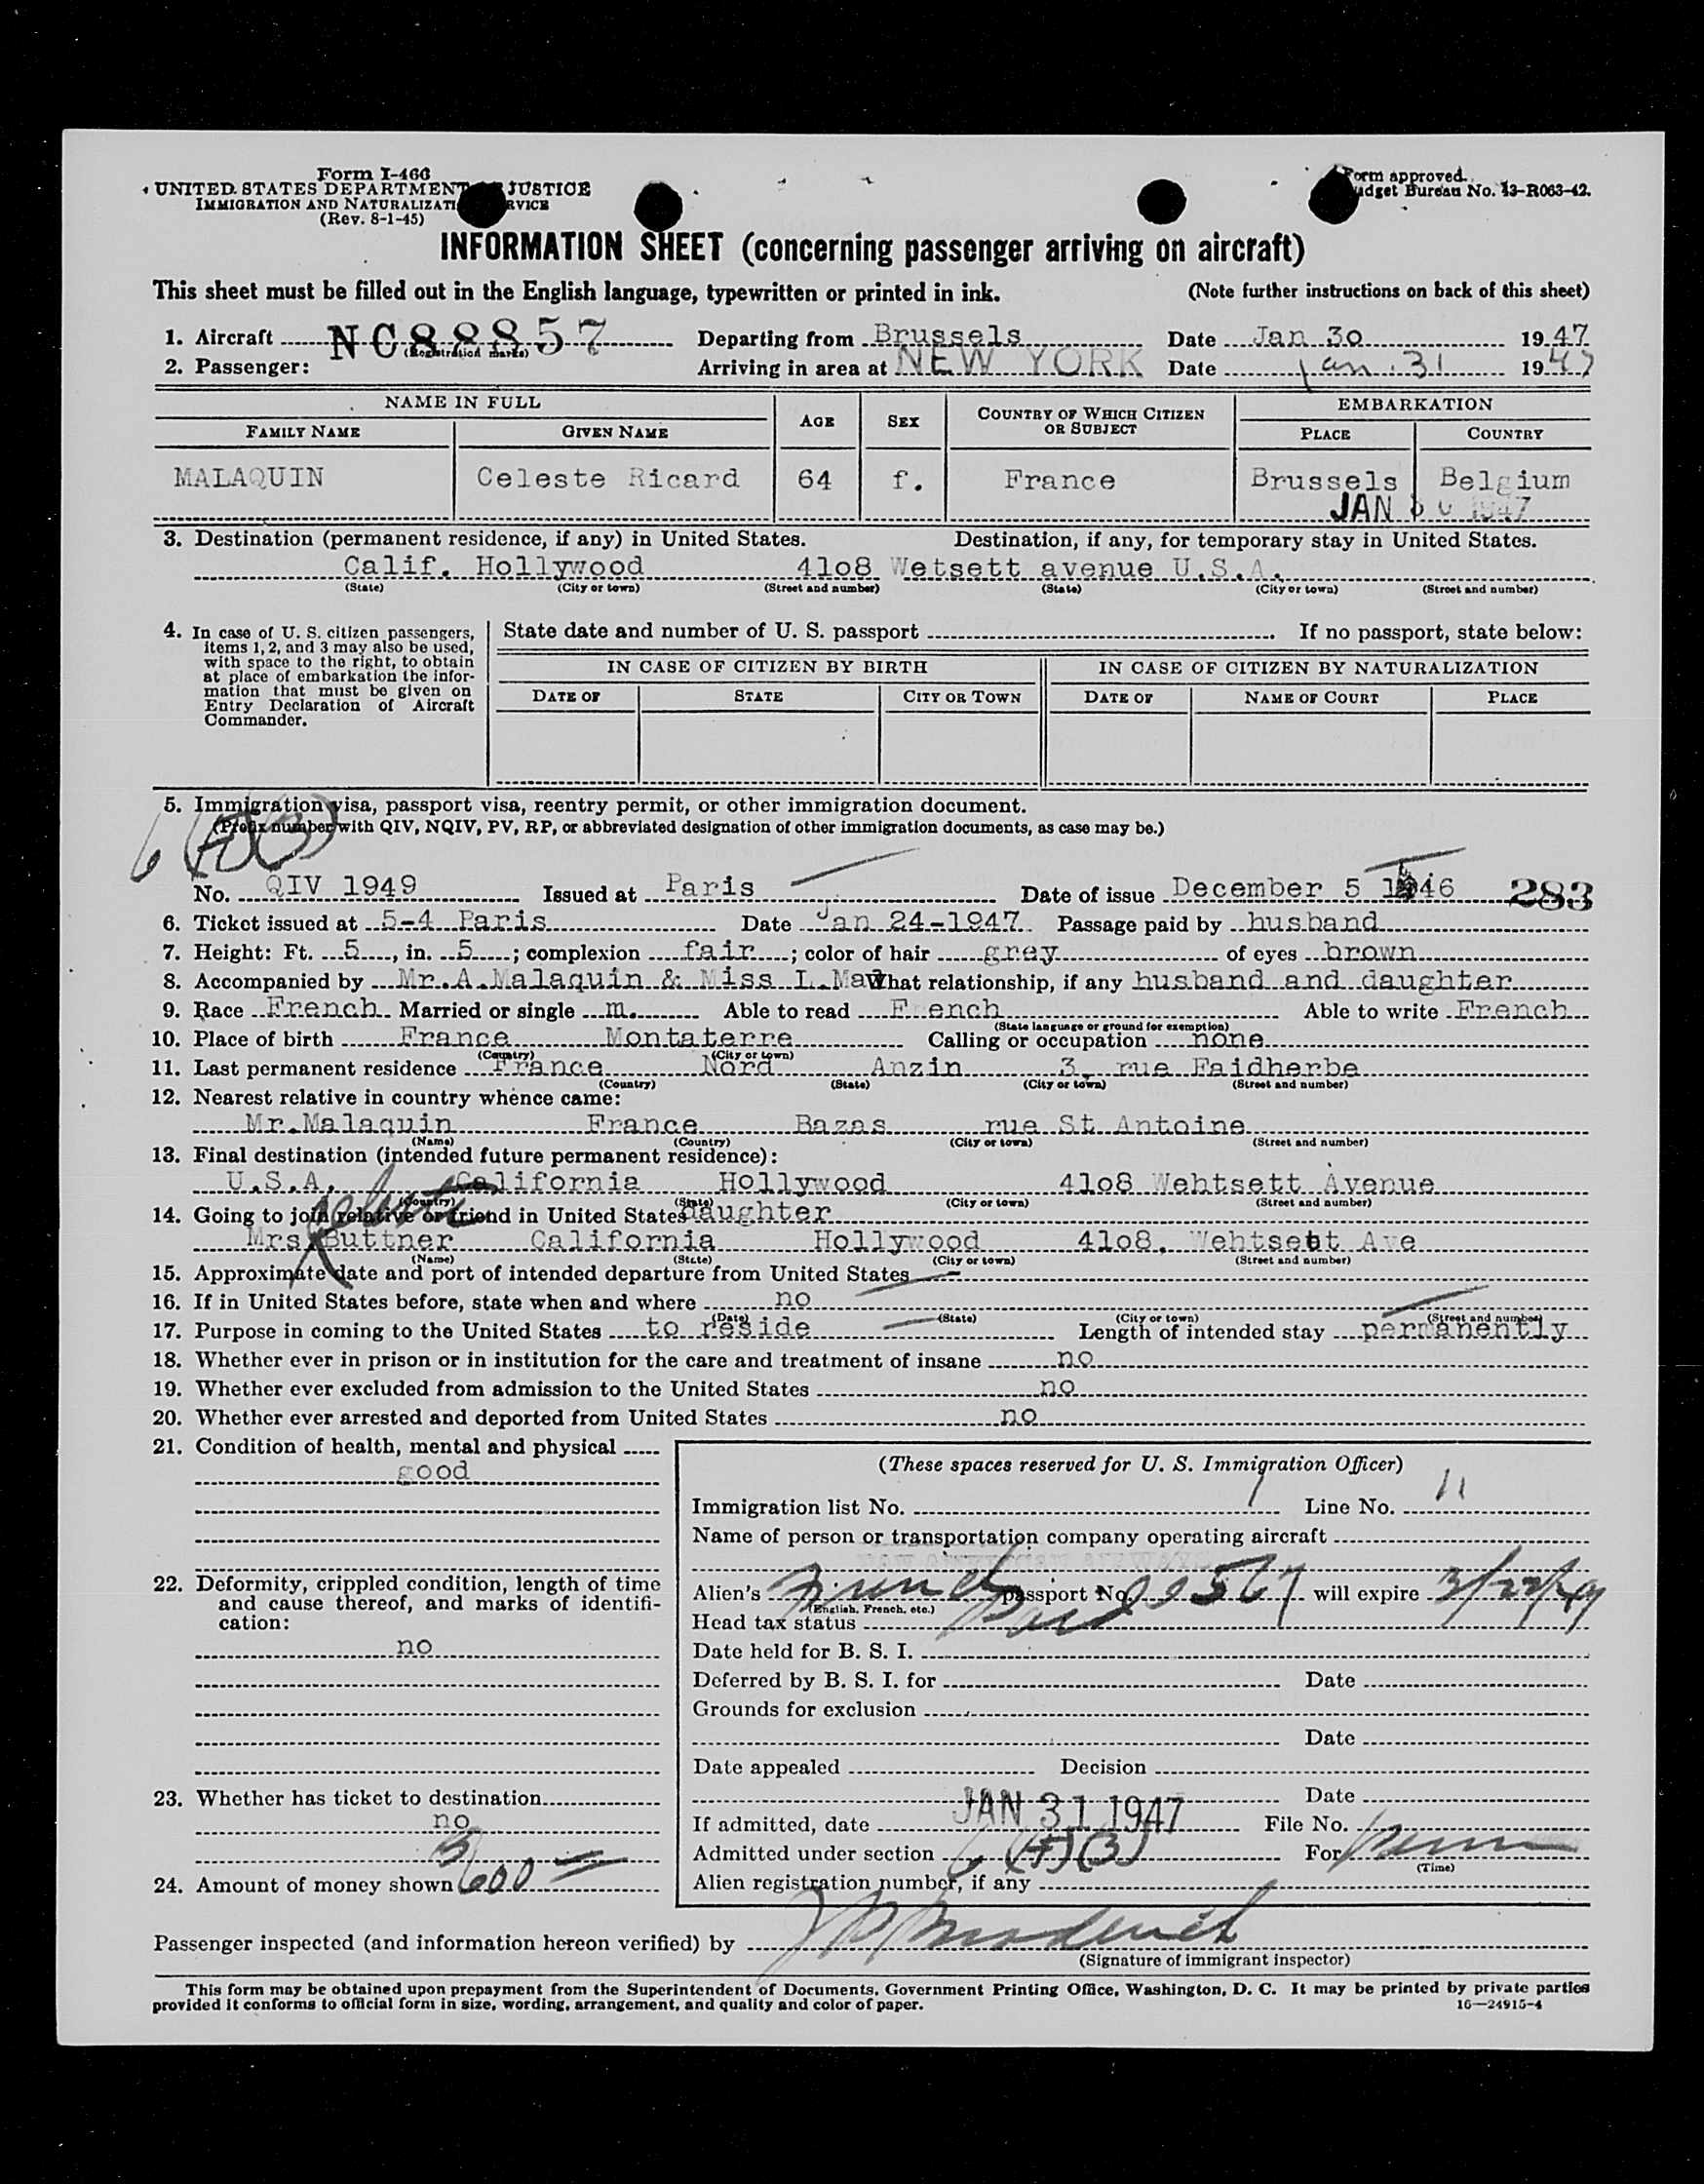 Form I-466
UNITED STATES DEPARTMENT JUSTICE
IMMIGRATION AND NATURALIZATI RVICE
(Rev. 8-1-45)
Form approved.
udget Bureau No. 43-R063-42.
INFORMATION SHEET (concerning passenger arriving on aircraft)
This sheet must be filled out in the English language, typewritten or printed in ink. (Note further instructions on back of this sheet)
1. Aircraft NC88857 (Registration marks) Departing from Brussels Date Jan 30 1947
2. Passenger: Arriving in area at NEW YORK Date Jan. 31 1947
NAME IN FULL AGE SEX COUNTRY OF WHICH CITIZEN OR SUBJECT EMBARKATION
FAMILY NAME GIVEN NAME PLACE COUNTRY
MALAQUIN Celeste Ricard 64 f. France Brussels Belgium
JAN 30 1947
3. Destination (permanent residence, if any) in United States. Destination, if any, for temporary stay in United States.
Calif. Hollywood 41o8 Wetsett avenue U.S.A.
(State) (City or town) (Street and number) (State) (City or town) (Street and number)
4. In case of U. S. citizen passengers, items 1, 2, and 3 may also be used, with space to the right, to obtain at place of embarkation the information that must be given on Entry Declaration of Aircraft Commander.
State date and number of U. S. passport . If no passport, state below:
IN CASE OF CITIZEN BY BIRTH IN CASE OF CITIZEN BY NATURALIZATION
DATE OF STATE CITY OR TOWN DATE OF NAME OF COURT PLACE
5. Immigration visa, passport visa, reentry permit, or other immigration document.
(Prefix number with QIV, NQIV, PV, RP, or abbreviated designation of other immigration documents, as case may be.)
No. QIV 1949 Issued at Paris Date of issue December 5 1946 283
6. Ticket issued at 5-4 Paris Date Jan 24-1947 Passage paid by husband
7. Height: Ft. 5, in. 5; complexion fair; color of hair grey of eyes brown
8. Accompanied by Mr.A.Malaquin & Miss L.Ma What relationship, if any husband and daughter
9. Race French Married or single m. Able to read F ench Able to write French
(State language or ground for exemption)
10. Place of birth France Montaterre Calling or occupation none
(Country) (City or town)
11. Last permanent residence France Nord Anzin 3, rue Faidherbe
(Country) (State) (City or town) (Street and number)
12. Nearest relative in country whence came:
Mr.Malaquin France Bazas rue St Antoine
(Name) (Country) (City or town) (Street and number)
13. Final destination (intended future permanent residence):
U.S.A. California Hollywood 41o8 Wehtsett Avenue
(Country) (State) (City or town) (Street and number)
14. Going to join relative or friend in United States daughter
Mrs Buttner California Hollywood 41o8, Wehtsett Ave
(Name) (State) (City or town) (Street and number)
15. Approximate date and port of intended departure from United States
16. If in United States before, state when and where no
(Date) (State) (City or town) (Street and number)
17. Purpose in coming to the United States to reside Length of intended stay permanently
18. Whether ever in prison or in institution for the care and treatment of insane no
19. Whether ever excluded from admission to the United States no
20. Whether ever arrested and deported from United States no
21. Condition of health, mental and physical
good
22. Deformity, crippled condition, length of time and cause thereof, and marks of identification:
no
23. Whether has ticket to destination
no
24. Amount of money shown 600
(These spaces reserved for U. S. Immigration Officer)
Immigration list No. 1 Line No. 11
Name of person or transportation company operating aircraft
Alien's French passport No. 567 will expire 3/22/49
(English, French, etc.)
Head tax status Paid
Date held for B. S. I.
Deferred by B. S. I. for Date
Grounds for exclusion
Date
Date appealed Decision
Date
If admitted, date JAN 31 1947 File No.
Admitted under section 6 (A)(3) For perm
(Time)
Alien registration number, if any
Passenger inspected (and information hereon verified) by
(Signature of immigrant inspector)
This form may be obtained upon prepayment from the Superintendent of Documents, Government Printing Office, Washington, D. C. It may be printed by private parties
provided it conforms to official form in size, wording, arrangement, and quality and color of paper. 16—24915-4